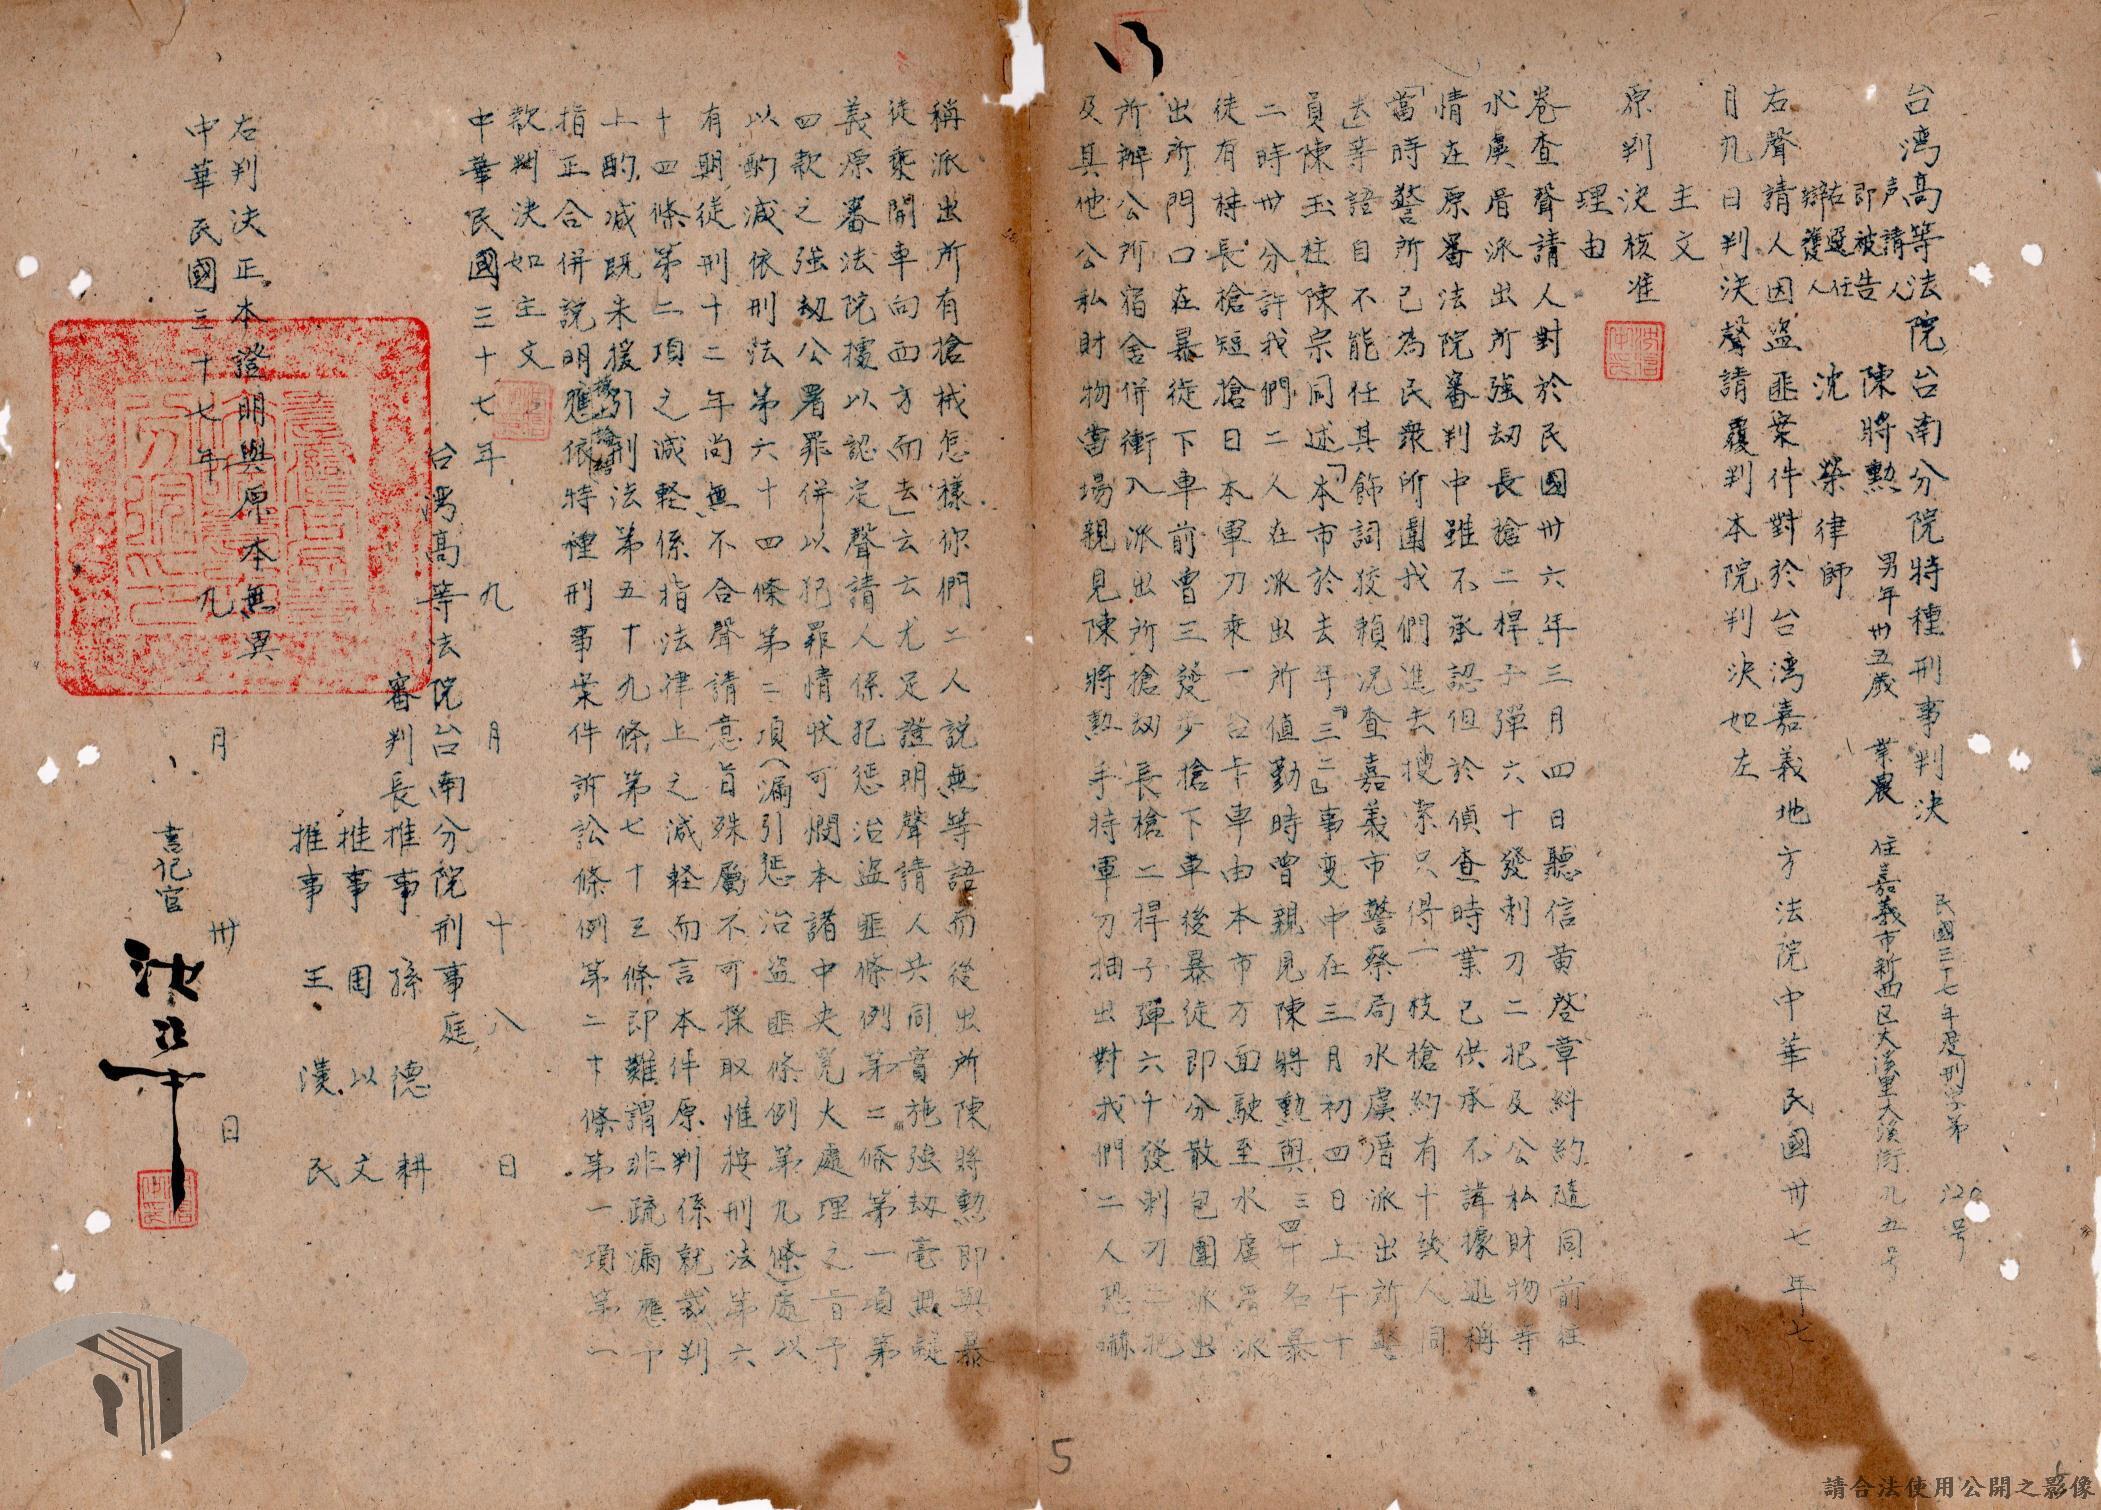 台湾高等法院台南分院特種刑事判決
民國三十七年度刑字第120号
声請人
即被告 陳將勲 男年卅五歲 業農 住嘉義市新西区大溪里大溪街九五号
右選任
辯護人 沈榮律師
右聲請人因盗匪案件對於台湾嘉義地方法院中華民國卅七年七
月九日判決聲請覆判本院判決如左
主文
原判決核准
理由
卷查聲請人對於民國卅六年三月四日聽信黄啓章糾約隨同前往
水虞厝派出所強刼長搶二桿子彈六十發刺刀二把及公私財物等
情在原審法院審判中雖不承認但於偵查時業已供承不諱據述稱
「當時警所已為民衆所圍我們進去搜索只得一枝槍約有十幾人同
去」等語自不能任其飾詞狡頼况查嘉義市警察局水虞厝派出所警
員陳玉柱陳宗同述「本市於去年「三二」事变中在三月初四日上午十
二時卅分許我們二人在派出所值勤時曽親見陳將勲與三四十名暴
徒有持長槍短搶日本軍刀乘一台卡車由本市方面駛至水虞厝派
出所門口在暴徒下車前曽三發步槍下車後暴徒即分散包圍派出
所辦公所宿舍併衝入派出所搶刼長槍二桿子彈六十發刺刀二把
及其他公私財物當場親見陳將勲手持軍刀抽出對我們二人恐嚇
稱派出所有搶械怎樣你們二人説無等語而從出所陳將勲即與暴
徒乘開車向西方而去」云云尤足證明聲請人共同實施強刼毫無疑
義原審法院據以認定聲請人係犯惩治盗匪條例第二條第一項第
四款之強刼公署罪併以犯罪情狀可憫本諸中央寛大處理之旨予
以酌減依刑法第六十四條第二項(漏引惩治盗匪條例第九條)處以
有期徒刑十二年尚無不合聲請意旨殊屬不可採取惟按刑法第六
十四條第二項之減軽係指法律上之減軽而言本件原判係就裁判
上酌減既未援引刑法第五十九條第七十三條即難謂非疏漏應予
指正合併説明
據上論結
應依特種刑事案件訴訟條例第二十條第一項第一
款判決如主文
中華民國三十七年九月十八日
台湾高等法院台南分院刑事庭
審判長推事 孫德耕
推事 周以文
推事 王漢民
右判決正本證明與原本無異
中華民國三十七年九月卅日
書記官
5
請合法使用公開之影像